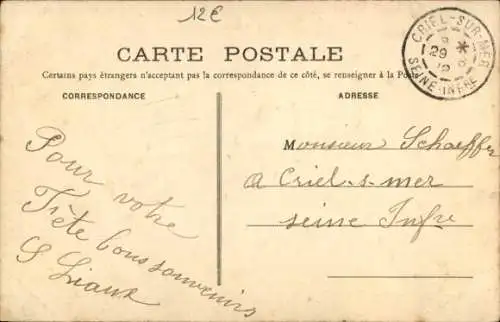 12€
CARTE POSTALE
Certains pays étrangers n'acceptant pas la correspondance de ce côté, se renseigner à la Poste
CORRESPONDANCE
ADRESSE
CRIEL-SUR-MER
29
SEINE-INFRE
Monsieur Schaeffer
a Criel-s-mer
seine Infre
Pour votre
Fête bons souvenirs